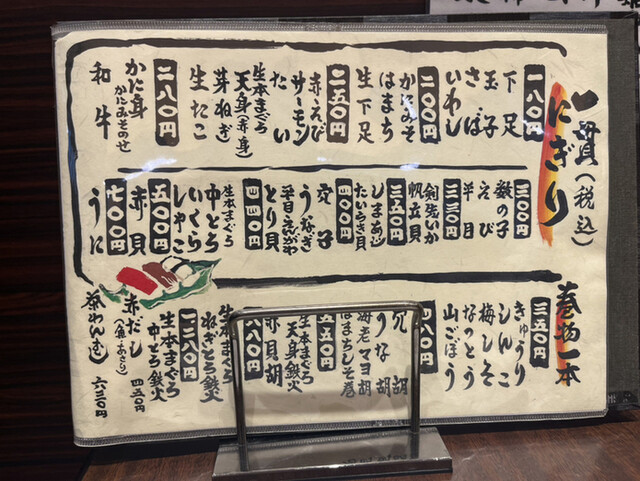 にぎり
一貫(税込)
一八〇円
下足
玉子
さば
いわし
二〇〇円
かにみそ
はまち
生下足
二五〇円
赤えび
サーモン
たい
生本まぐろ
天身(赤身)
芽ねぎ
生たこ
二八〇円
かに身
かにみそのせ
和牛
三〇〇円
数の子
えび
平目
三三〇円
剣先いか
帆立貝
三五〇円
しまあじ
たいらぎ貝
四〇〇円
穴子
うなぎ
平目えんがわ
とり貝
四四〇円
生本まぐろ
中とろ
いくら
しゃこ
五〇〇円
赤貝
七〇〇円
うに
巻物一本
三五〇円
きゅうり
しんこ
梅しそ
なっとう
山ごぼう
四八〇円
穴胡
うな胡
海老マヨ胡
はまちしそ巻
五五〇円
生本まぐろ
天身鉄火
赤貝胡
八八〇円
生本まぐろ
ねぎとろ鉄火
一二八〇円
生本まぐろ
中とろ鉄火
赤だし
(魚・あさり)
四五〇円
茶わんむし
六三〇円